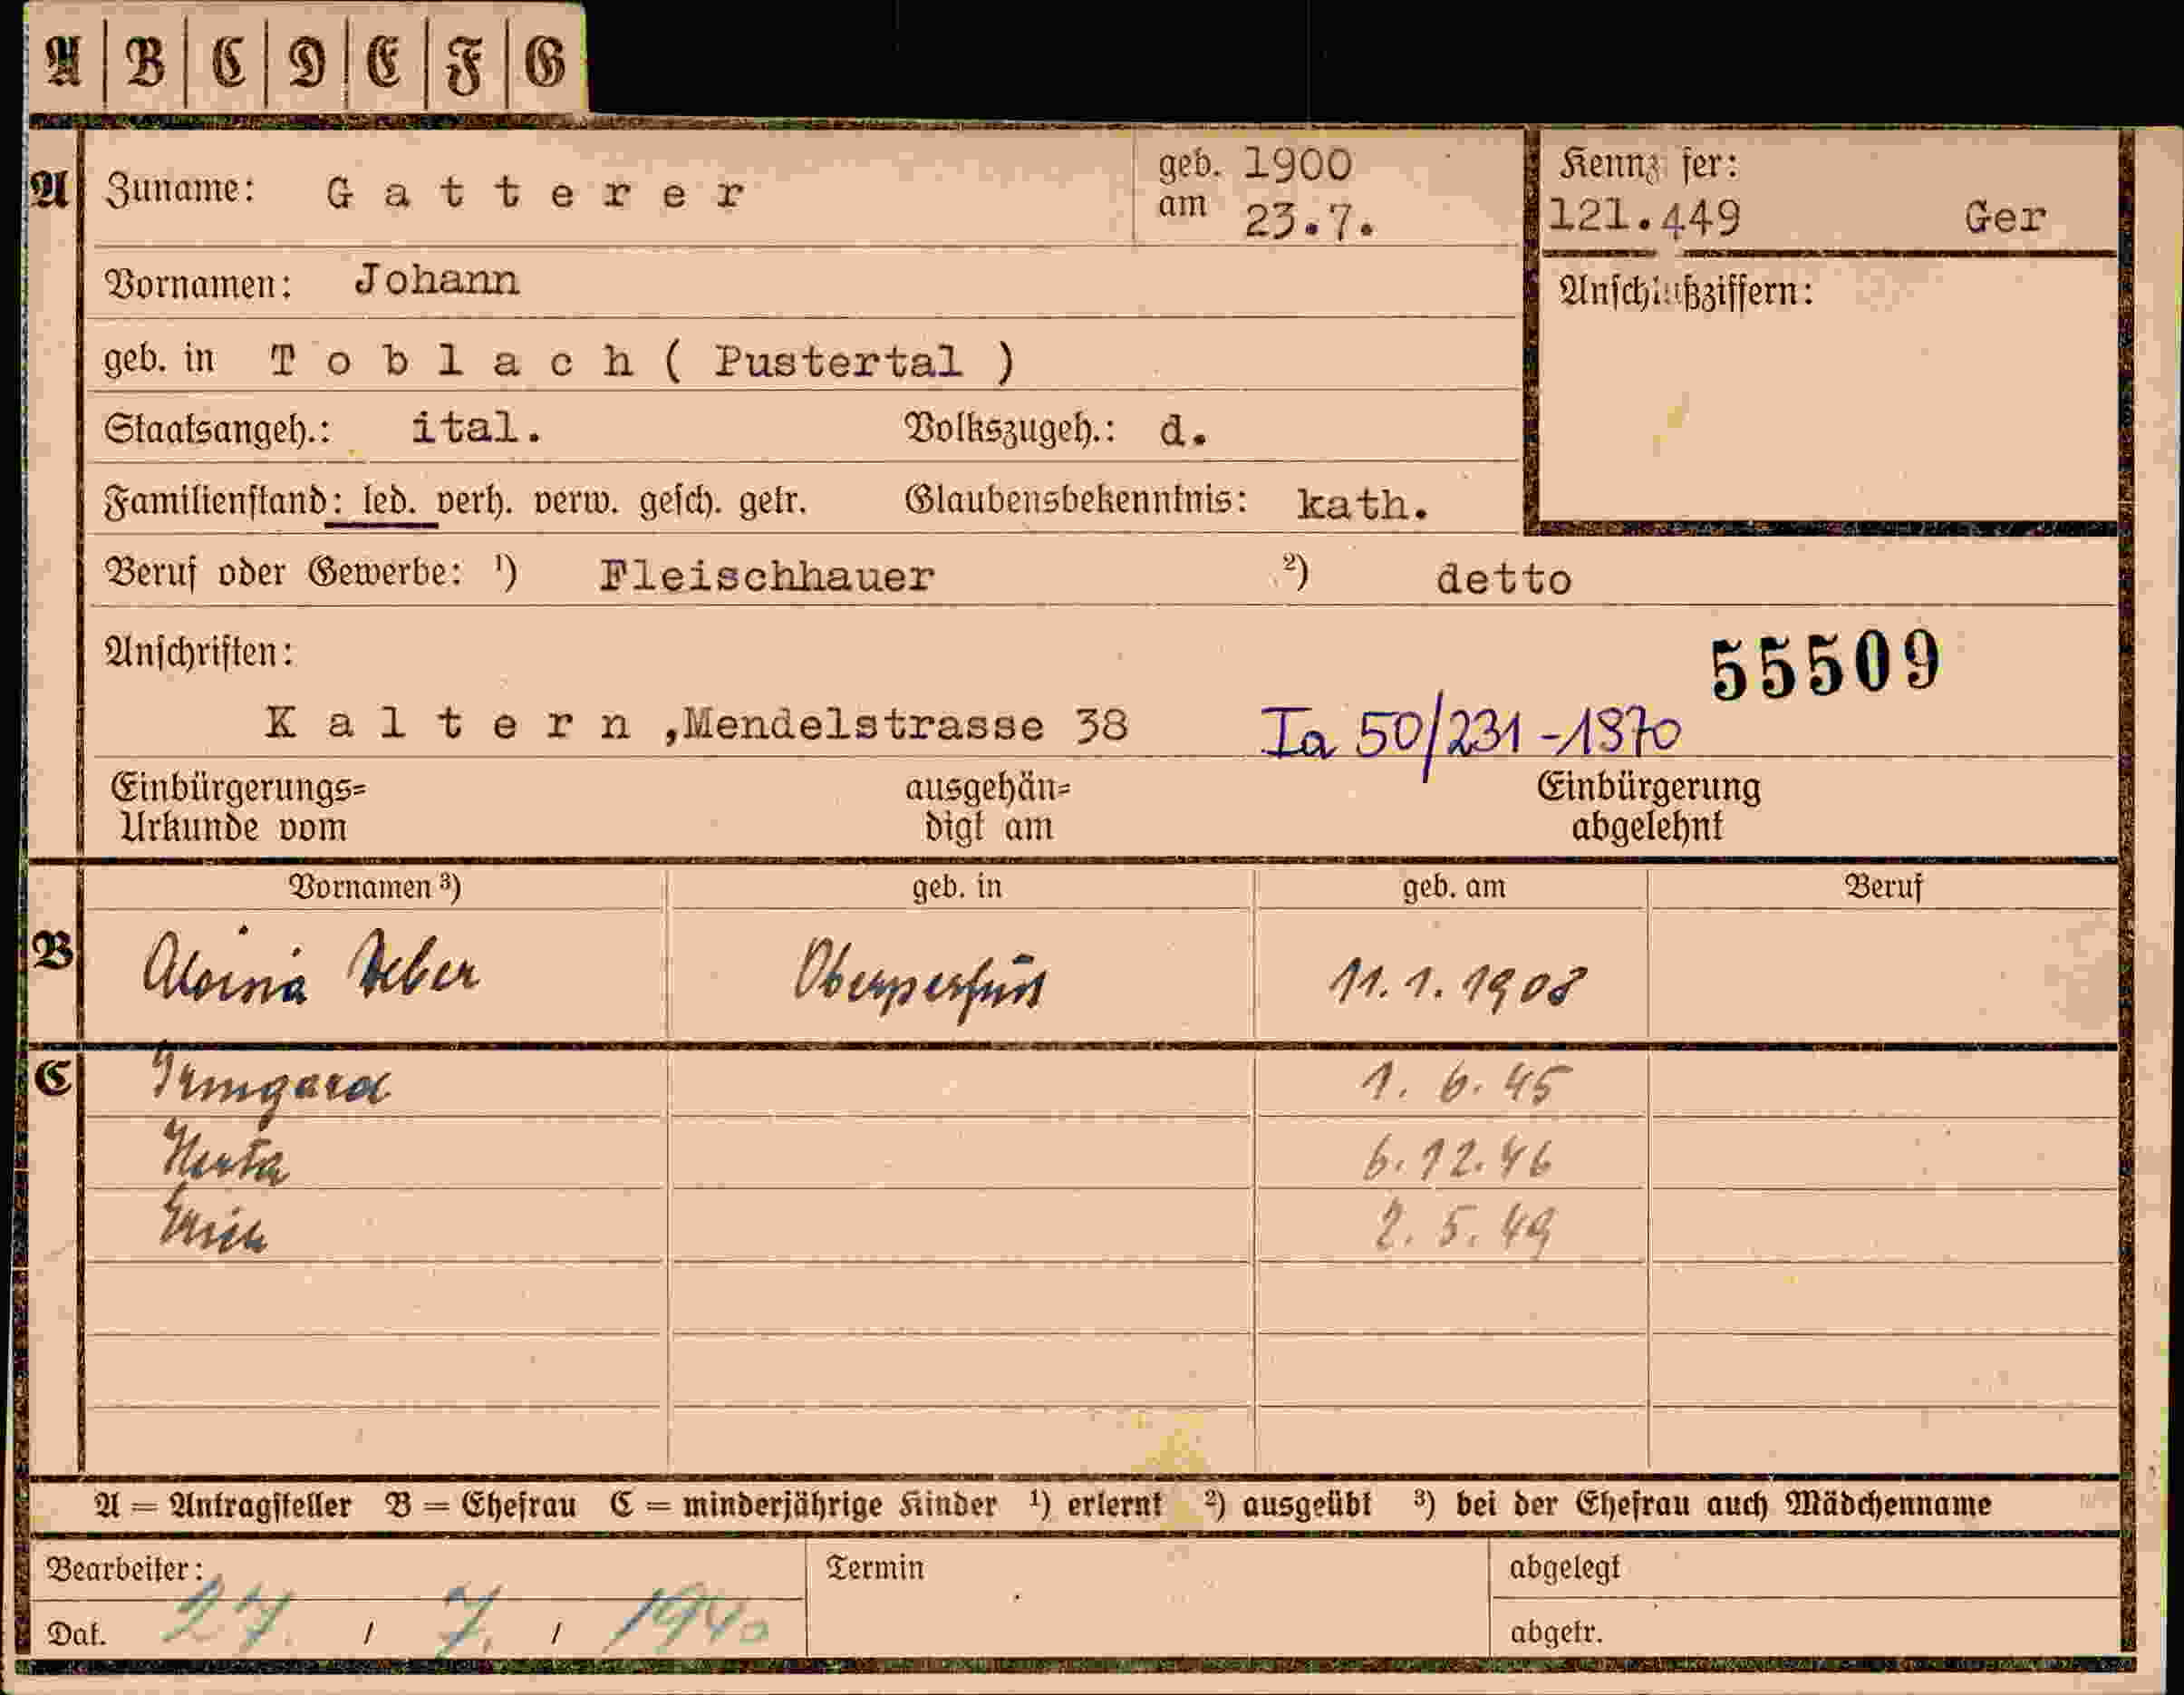 A B C D E F G
A Zuname: G a t t e r e r geb. am 1900 23.7.
Kennz fer:
121.449 Ger
Vornamen: Johann
Anschlußziffern:
geb. in T o b l a c h ( Pustertal )
Staatsangeh.: ital. Volkszugeh.: d.
Familienstand: led. verh. verw. gesch. getr. Glaubensbekenntnis: kath.
Beruf oder Gewerbe: ¹) Fleischhauer ²) detto
Anschriften: 55509
K a l t e r n ,Mendelstrasse 38 Ia 50/231-1870
Einbürgerungs= ausgehän= Einbürgerung
Urkunde vom digt am abgelehnt
Vornamen ³) geb. in geb. am Beruf
B Aloisia Weber Oberperfuss 11.1.1908
C Irmgard 1. 6. 45
Herta 6.12.46
Erich 2. 5. 49
A = Antragsteller B = Ehefrau C = minderjährige Kinder ¹) erlernt ²) ausgeübt ³) bei der Ehefrau auch Mädchenname
Bearbeiter: Termin abgelegt
Dat. 27. / 7. / 1940 abgetr.